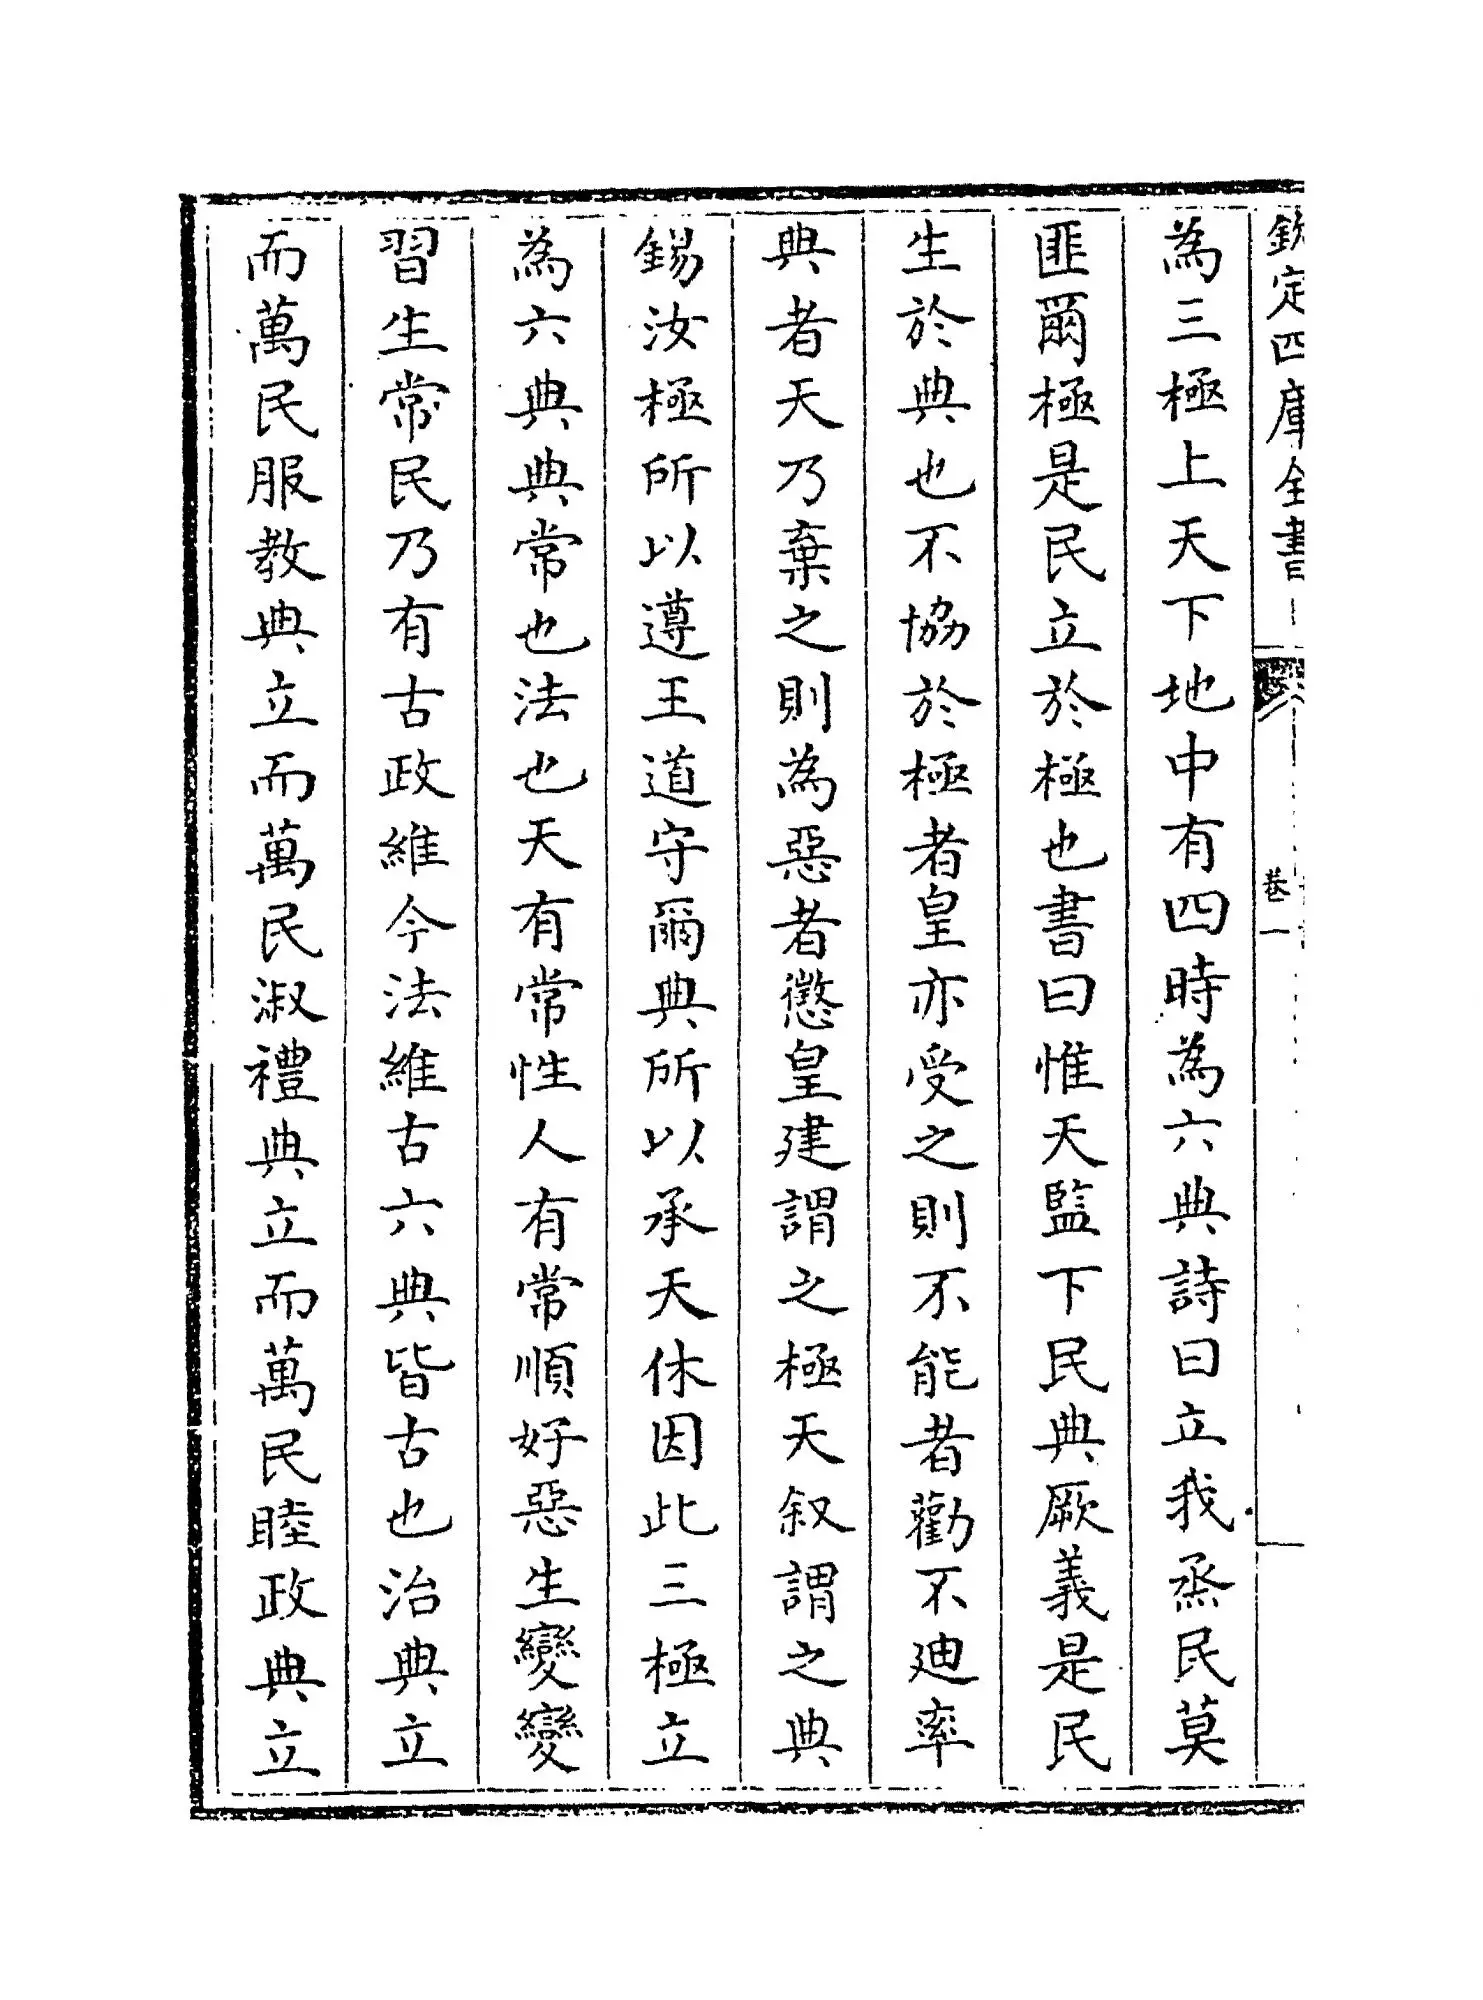 欽定四庫全書
卷一
為三極上天下地中有四時為六典詩曰立我烝民莫
匪爾極是民立於極也書曰惟天監下民典厥義是民
生於典也不協於極者皇亦受之則不能者勸不迪率
典者天乃棄之則為惡者懲皇建謂之極天叙謂之典
錫汝極所以遵王道守爾典所以承天休因此三極立
為六典典常也法也天有常性人有常順好惡生變變
習生常民乃有古政維今法維古六典皆古也治典立
而萬民服教典立而萬民淑禮典立而萬民睦政典立